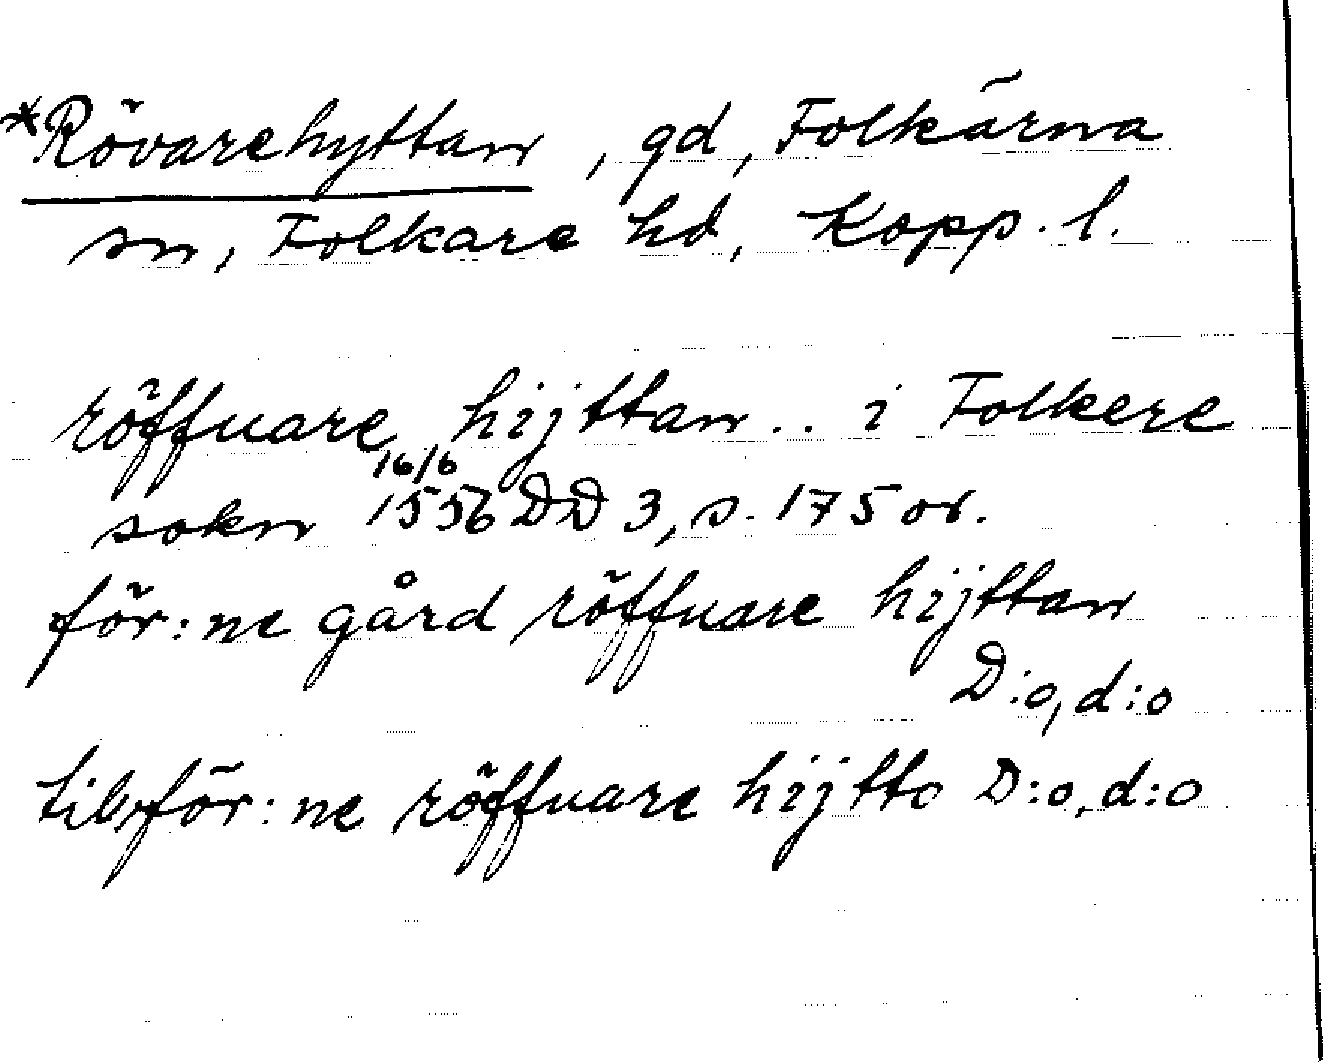 *Rövarehyttan, gd, Folkärna
sn, Folkare hd, Kopp. l.
röffuare hijttan .. i Folkere
sokn 16/6 1556 DD 3, s. 175 or.
för:ne gård röffuare hijttan
D:o, d:o
till för:ne röffuare hijtto D:o, d:o